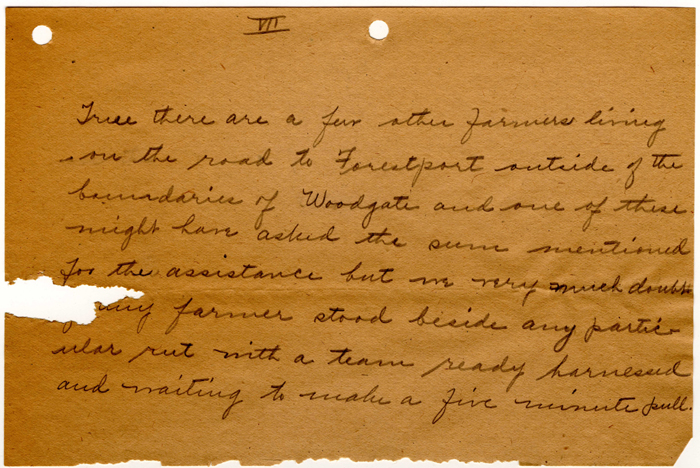 VII
True there are a few other farmers living
on the road to Forestport outside of the
boundaries of Woodgate and one of these
might have asked the sum mentioned
for the assistance but we very much doubt
farmer stood beside any partic-
ular rut with a team ready harnessed
and waiting to make a five minute pull.